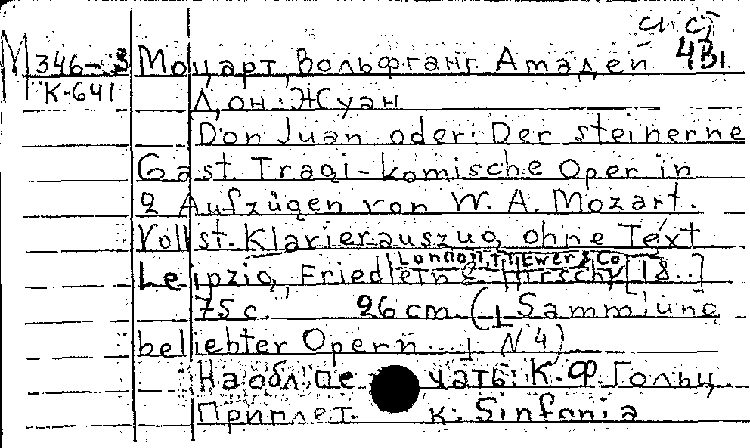 сист
М 346-3 Моцарт, Вольфганг Амадей 4В1
К-641 Дон-Жуан
Don Juan oder: Der steinerne
Gast. Tragi-komische Oper in
2 Aufzügen von W. A. Mozart.
Vollst. Klavierauszug ohne Text
London, Ewer & Co
Leipzig, Friedlein & Hirsch, [18..]
75 с. 26 cm. (Sammlung
beliebter Opern... N 4)
На обл. печать: К. Ф. Гольц
Приплет. к: Sinfonia